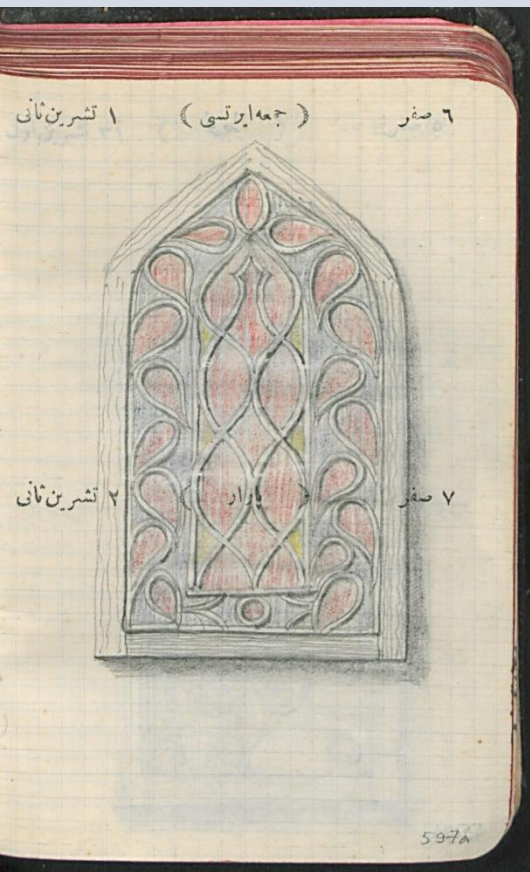 ٦ صفر ﴿ جمعه ايرتسى ﴾ ١ تشرين ثانى
٧ صفر ﴿ پازار ﴾ ٢ تشرين ثانى
597a